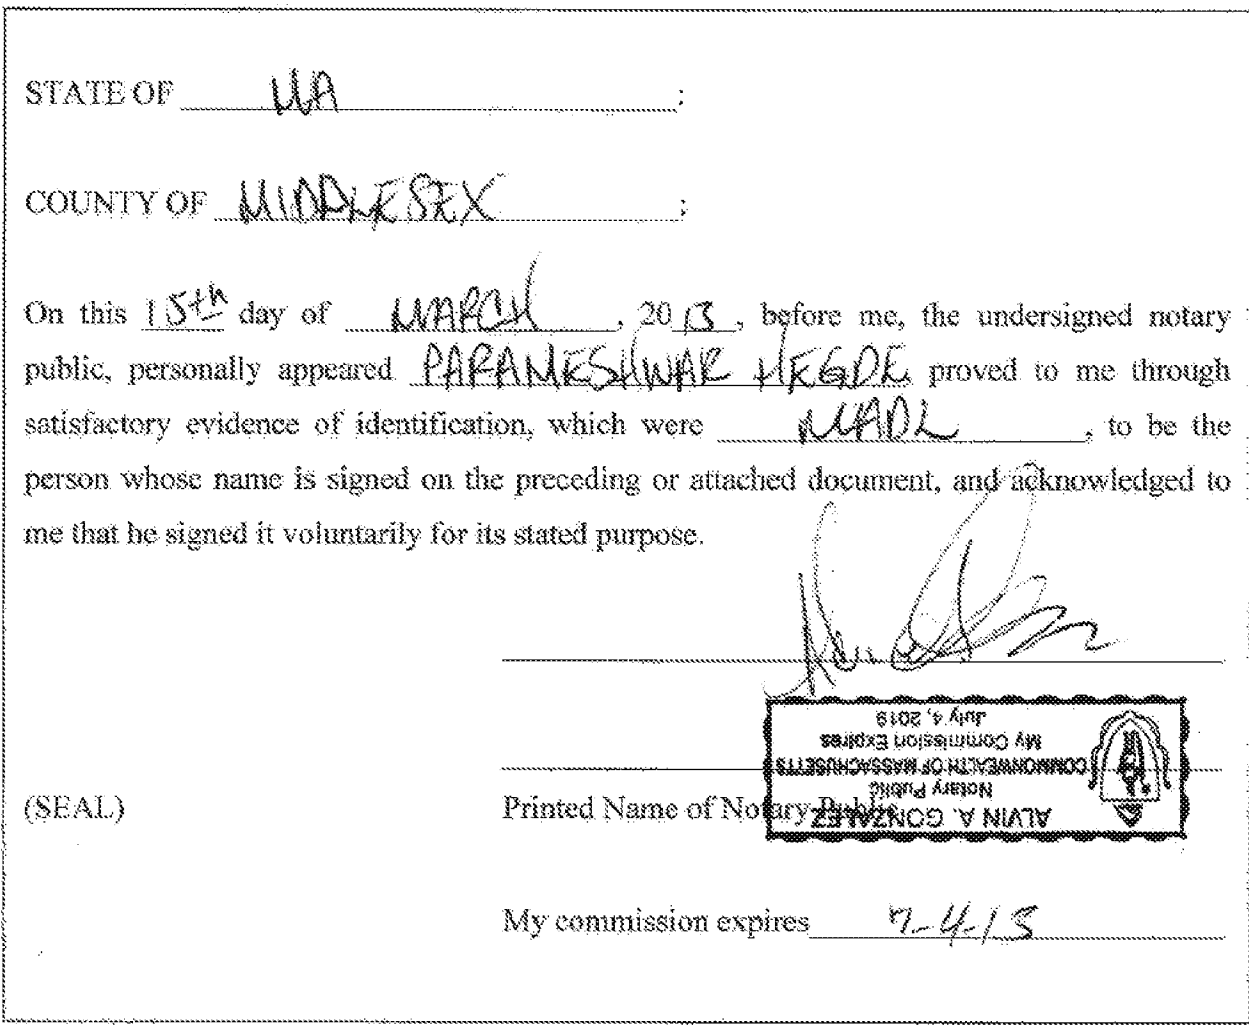 STATE OF MA :
COUNTY OF MIDDLESEX :
On this 15th day of MARCH, 2013, before me, the undersigned notary
public, personally appeared PARAMESHWAR HEGDE, proved to me through
satisfactory evidence of identification, which were MADL, to be the
person whose name is signed on the preceding or attached document, and acknowledged to
me that he signed it voluntarily for its stated purpose.
ALVIN A. GONZALEZ
Notary Public
COMMONWEALTH OF MASSACHUSETTS
My Commission Expires
July 4, 2019
(SEAL) Printed Name of Notary Public
My commission expires 7-4-13